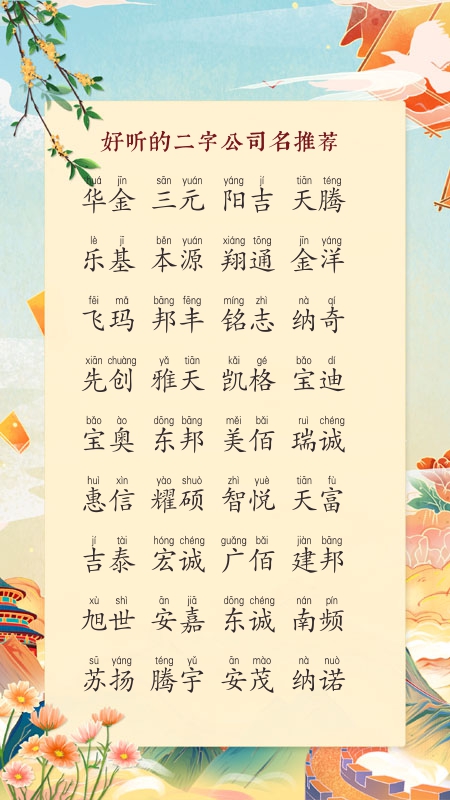 好听的二字公司名推荐
huá jīn sān yuán yáng jí tiān téng
华金 三元 阳吉 天腾
lè jī běn yuán xiáng tōng jīn yáng
乐基 本源 翔通 金洋
fēi mǎ bāng fēng míng zhì nà qí
飞玛 邦丰 铭志 纳奇
xiān chuàng yǎ tiān kǎi gé bǎo dí
先创 雅天 凯格 宝迪
bǎo ào dōng bāng měi bǎi ruì chéng
宝奥 东邦 美佰 瑞诚
huì xìn yào shuò zhì yuè tiān fù
惠信 耀硕 智悦 天富
jí tài hóng chéng guǎng bǎi jiàn bāng
吉泰 宏诚 广佰 建邦
xù shì ān jiā dōng chéng nán pín
旭世 安嘉 东诚 南频
sū yáng téng yǔ ān mào nà nuò
苏扬 腾宇 安茂 纳诺